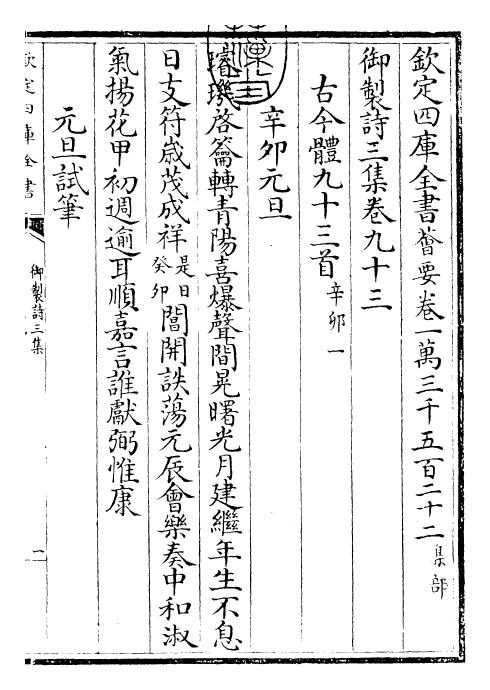 欽定四庫全書薈要卷一萬三千五百二十二 集部
御製詩三集卷九十三
古今體九十三首 辛卯一
辛卯元旦
璿璣啓籥轉青陽喜爆聲間晃曙光月建繼年生不息
日支符歲茂成祥 是日癸卯 閶開詄蕩元辰會樂奏中和淑
氣揚花甲初週逾耳順嘉言誰獻弼惟康
元旦試筆
欽定四庫全書
御製詩三集